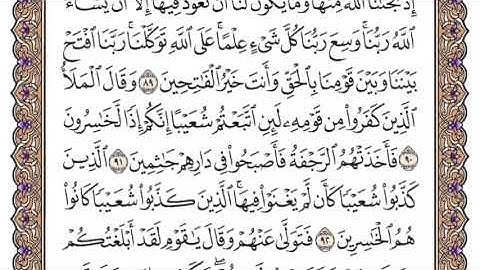 إِذْ نَجَّىٰنَا ٱللَّهُ مِنْهَا وَمَا يَكُونُ لَنَآ أَن نَّعُودَ فِيهَآ إِلَّآ أَن يَشَآءَ
ٱللَّهُ رَبُّنَا وَسِعَ رَبُّنَا كُلَّ شَىْءٍ عِلْمًا عَلَى ٱللَّهِ تَوَكَّلْنَا رَبَّنَا ٱفْتَحْ
بَيْنَنَا وَبَيْنَ قَوْمِنَا بِٱلْحَقِّ وَأَنتَ خَيْرُ ٱلْفَٰتِحِينَ ٨٩ وَقَالَ ٱلْمَلَأُ
ٱلَّذِينَ كَفَرُوا۟ مِن قَوْمِهِۦ لَئِنِ ٱتَّبَعْتُمْ شُعَيْبًا إِنَّكُمْ إِذًا لَّخَٰسِرُونَ
٩٠ فَأَخَذَتْهُمُ ٱلرَّجْفَةُ فَأَصْبَحُوا۟ فِى دَارِهِمْ جَٰثِمِينَ ٩١ ٱلَّذِينَ
كَذَّبُوا۟ شُعَيْبًا كَأَن لَّمْ يَغْنَوْا۟ فِيهَا ٱلَّذِينَ كَذَّبُوا۟ شُعَيْبًا كَانُوا۟
هُمُ ٱلْخَٰسِرِينَ ٩٢ فَتَوَلَّىٰ عَنْهُمْ وَقَالَ يَٰقَوْمِ لَقَدْ أَبْلَغْتُكُمْ